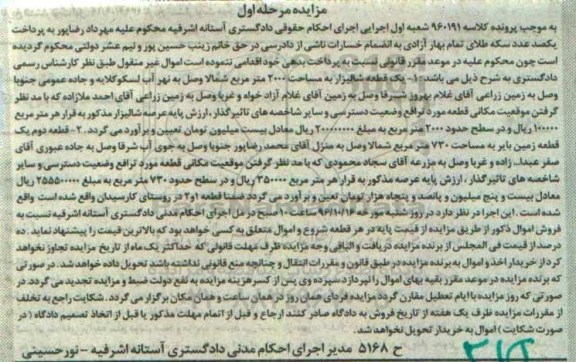 مزایده مرحله اول
به موجب پرونده کلاسه ۹۶۰۱۹۱ شعبه اول اجرایی اجرای احکام حقوقی دادگستری آستانه اشرفیه محکوم علیه مهرداد رضاپور به پرداخت
یکصد عدد سکه طلای تمام بهار آزادی به انضمام خسارات ناشی از دادرسی در حق خانم زینب حسین پور و نیم عشر دولتی محکوم گردیده
است چون محکوم علیه در موعد مقرر قانونی نسبت به پرداخت بدهی خود اقدامی ننموده است اموال غیر منقول طبق نظر کارشناس رسمی
دادگستری به شرح ذیل می باشد: ۱- یک قطعه شالیزار به مساحت ۲۰۰۰ متر مربع شمالا وصل به نهر آب اسکولکایه و جاده عمومی جنوبا
وصل به زمین زراعی آقای غلام بهروز شرقا وصل به زمین آقای غلام آزاد خواه و غربا وصل به زمین زراعی آقای احمد ملازاده که با مد نظر
گرفتن موقعیت مکانی قطعه مورد ترافع وضعیت دسترسی و سایر شاخصه های تاثیرگذار، ارزش پایه عرصه شالیزار مذکور به قرار هر متر مربع
۱۰۰۰۰۰ ریال و در سطح حدود ۲۰۰۰ متر مربع به مبلغ ۲۰۰۰۰۰۰۰۰ ریال معادل بیست میلیون تومان تعیین و برآورد می گردد. ۲- قطعه دوم یک
قطعه زمین بایر به مساحت ۷۳۰ متر مربع شمالا وصل به منزل آقای محمد رضاپور جنوبا وصل به جوی آب شرقا وصل به جاده عبوری آقای
صفر عبداله زاده و غربا وصل به مزرعه آقای سجاد محمودی که با مد نظر گرفتن موقعیت مکانی قطعه مورد ترافع وضعیت دسترسی و سایر
شاخصه های تاثیر گذار، ارزش پایه عرصه مذکور به قرار هر متر مربع ۳۵۰۰۰۰ ریال و در سطح حدود ۷۳۰ متر مربع به مبلغ ۲۵۵۵۰۰۰۰۰ ریال
معادل بیست و پنج میلیون و پانصد و پنجاه هزار تومان تعیین و برآورد می گردد ضمنا قطعه ۱و۲ در روستای کارسیدان واقع شده است واقع
شده است. این اجرا در نظر دارد در روز شنبه مورخه ۹۶/۱۰/۱۶ ساعت ۱۰ صبح در محل اجرای احکام مدنی دادگستری آستانه اشرفیه نسبت به
فروش اموال ذکور از طریق مزایده از قیمت پایه در هر قطعه شروع و اموال متعلق به کسی خواهد بود که بالاترین قیمت را پیشنهاد نماید. ده
درصد از قیمت فی المجلس از برنده مزایده دریافت و الباقی وجه مزایده ظرف مهلت قانونی که حداکثر یک ماه از تاریخ مزایده تجاوز نخواهد
کرد از خریدار اخذ و اموال به برنده مزایده در طبق قانون و مقررات انتقال و چنانچه منع قانونی نداشته باشد تحویل داده خواهد شد. در صورتی
که برنده مزایده در موعد مقرر بقیه بهای اموال را نپردازد سپرده وی پس از کسر هزینه مزایده به نفع دولت ضبط و مزایده تجدید می گردد. در
صورتی که روز مزایده با ایام تعطیل مقارن گردد مزایده فردای همان روز در همان ساعت و همان مکان برگزار می گردد. شکایت راجع به تخلف
از مقررات مزایده ظرف یک هفته از تاریخ فروش به دادگاه صادر کننده ارجاع و قبل از اتمام مهلت مذکور یا قبل از اتخاذ تصمیم دادگاه (در
صورت شکایت) اموال به خریدار تحویل نخواهد شد.
ح ۵۱۶۸ مدیر اجرای احکام مدنی دادگستری آستانه اشرفیه - نورحسینی